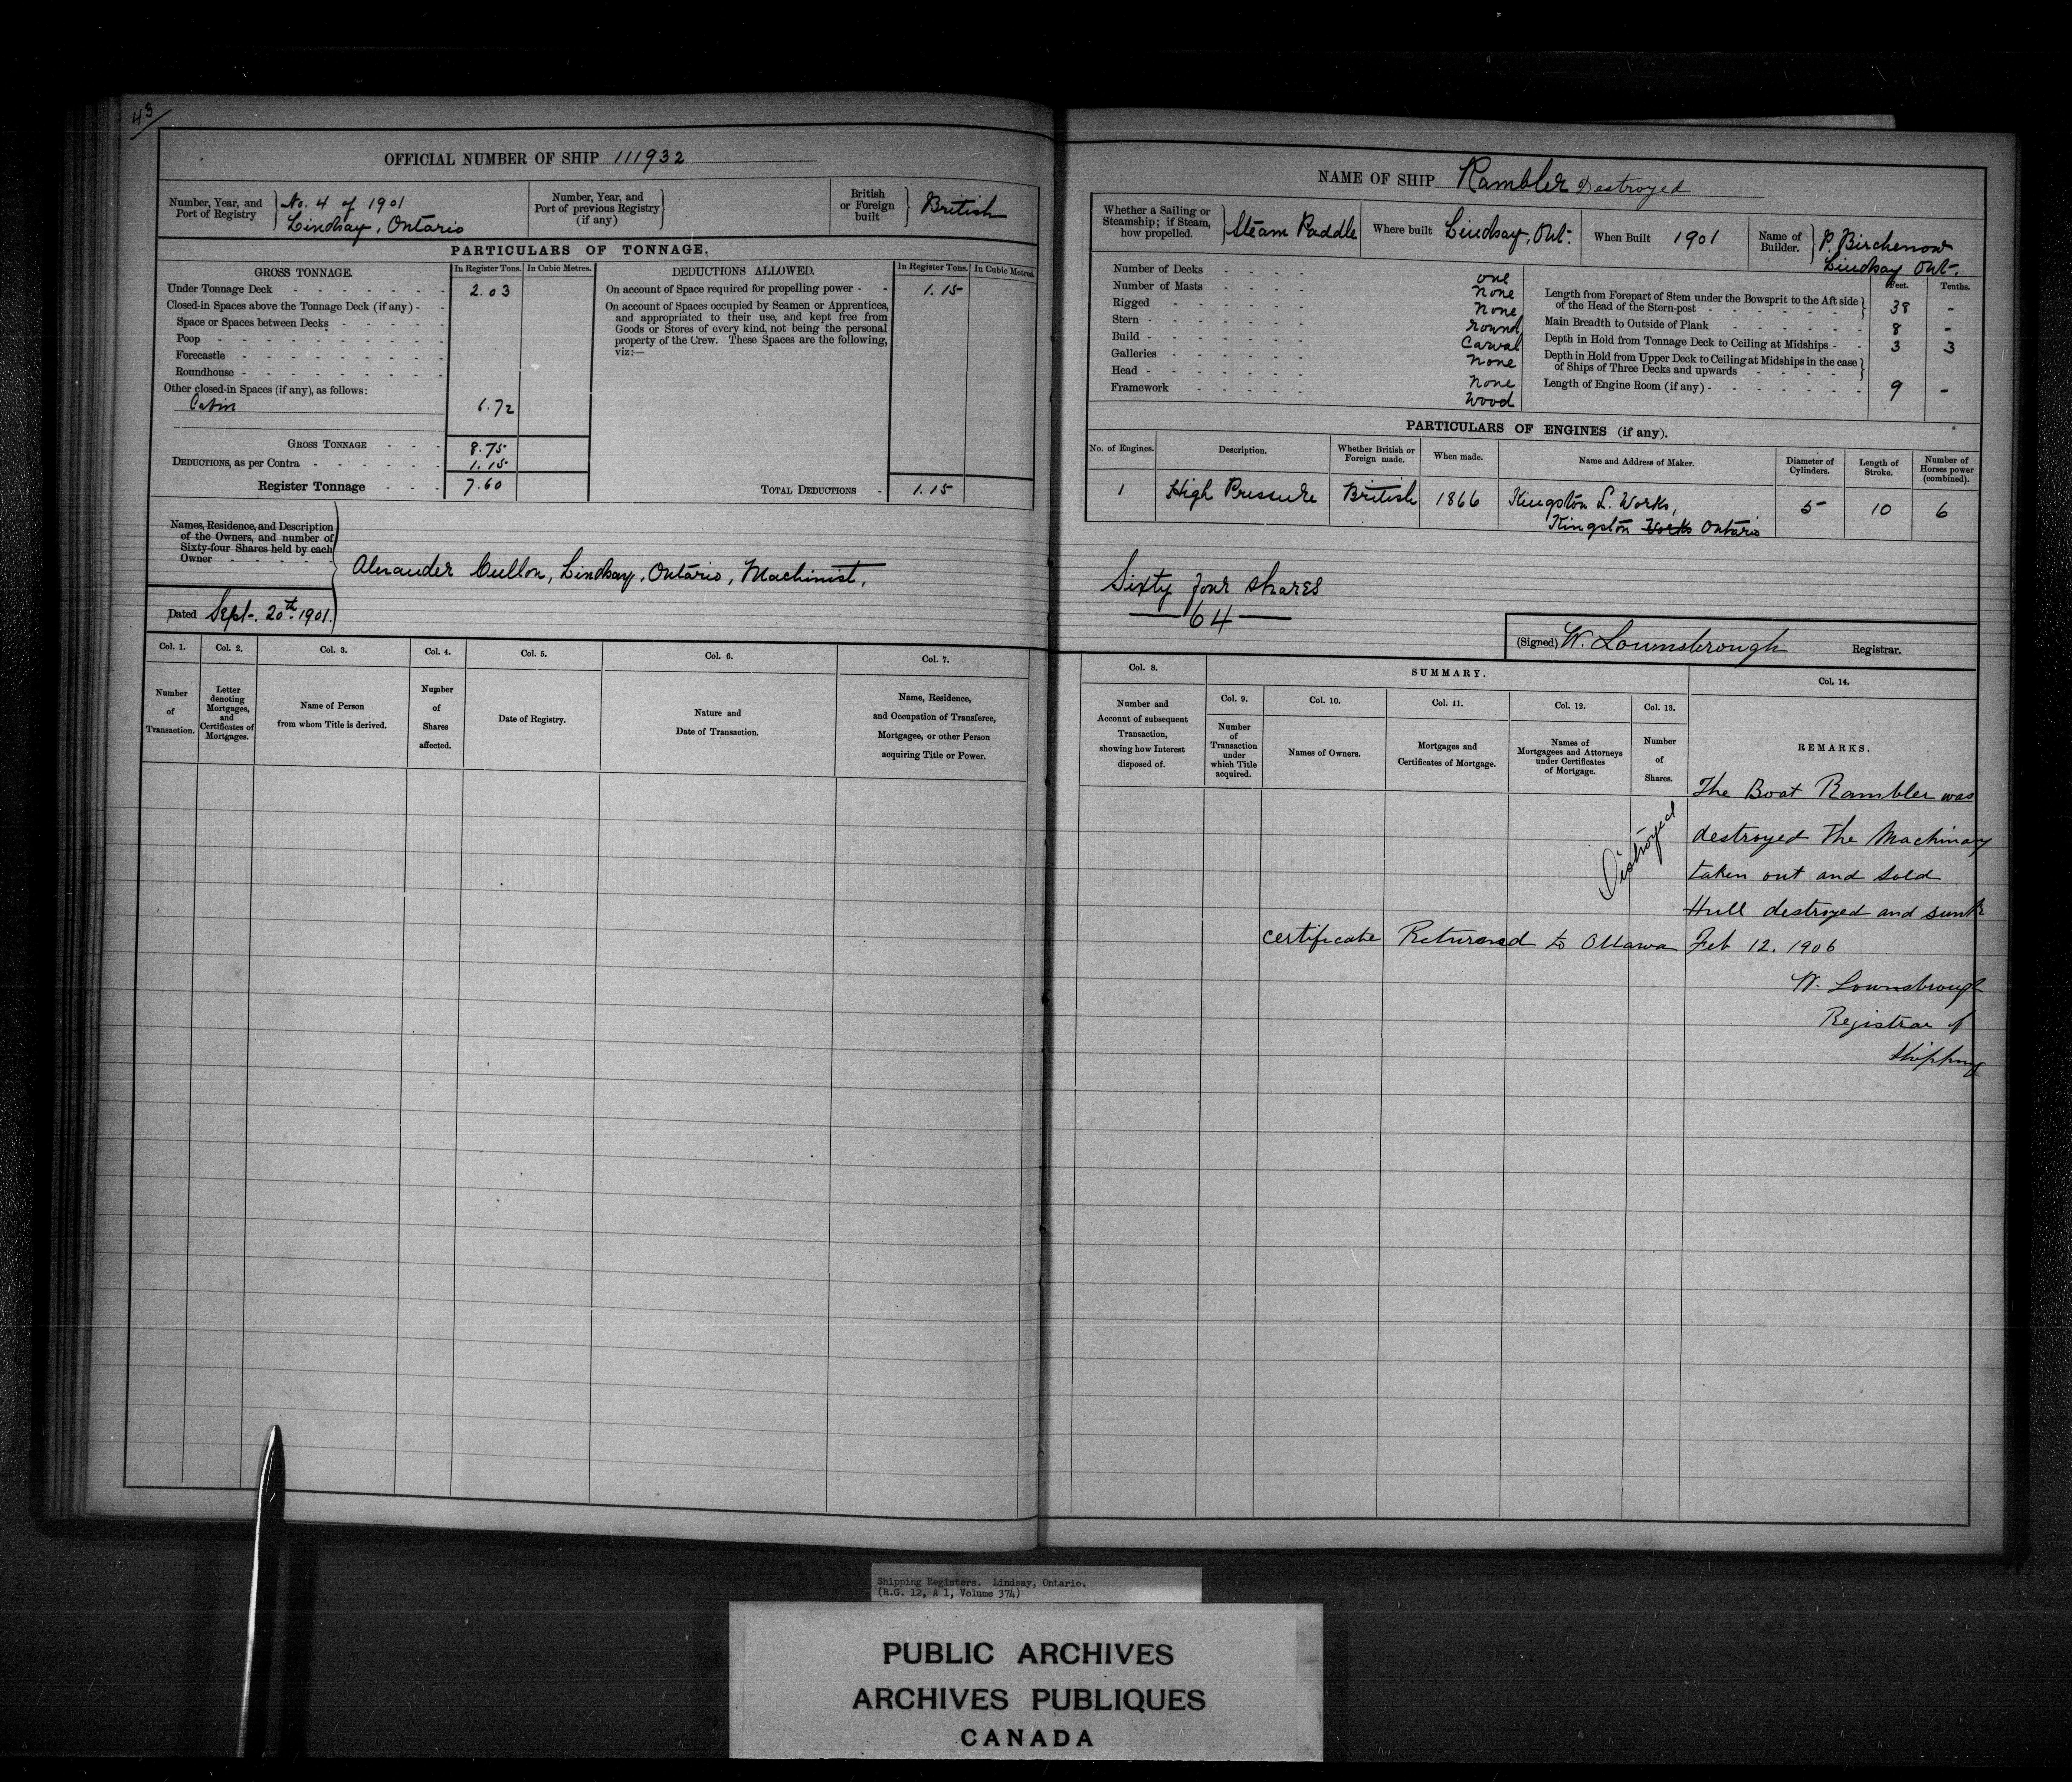 43
OFFICIAL NUMBER OF SHIP 111932
Number, Year, and Port of Registry
No. 4 of 1901
Lindsay, Ontario
Number, Year, and Port of previous Registry (if any)
British or Foreign built
British
PARTICULARS OF TONNAGE.
GROSS TONNAGE.
In Register Tons. In Cubic Metres.
DEDUCTIONS ALLOWED.
In Register Tons. In Cubic Metres.
Under Tonnage Deck - - - - - - 2.03
Closed-in Spaces above the Tonnage Deck (if any) - -
Space or Spaces between Decks - - - - -
Poop - - - - - - - - -
Forecastle - - - - - - - -
Roundhouse - - - - - - - -
Other closed-in Spaces (if any), as follows:
Cabin 6.72
GROSS TONNAGE - - - 8.75
DEDUCTIONS, as per Contra - - - - - - 1.15
Register Tonnage - - - 7.60
On account of Space required for propelling power - - 1.15
On account of Spaces occupied by Seamen or Apprentices,
and appropriated to their use, and kept free from
Goods or Stores of every kind, not being the personal
property of the Crew. These Spaces are the following,
viz:—
TOTAL DEDUCTIONS - 1.15
Names, Residence, and Description
of the Owners, and number of
Sixty-four Shares held by each
Owner - - - - -
Alexander Cullon, Lindsay, Ontario, Machinist,
Dated Sept. 20th 1901.
Col. 1. Col. 2. Col. 3. Col. 4. Col. 5. Col. 6. Col. 7.
Number of Transaction.
Letter denoting Mortgages, and Certificates of Mortgages.
Name of Person from whom Title is derived.
Number of Shares affected.
Date of Registry.
Nature and Date of Transaction.
Name, Residence, and Occupation of Transferee, Mortgagee, or other Person acquiring Title or Power.
NAME OF SHIP Rambler Destroyed
Whether a Sailing or Steamship; if Steam, how propelled.
Steam Paddle
Where built Lindsay, Ont.
When Built 1901
Name of Builder.
P. Birchenow
Lindsay Ont.
Number of Decks - - - - one
Number of Masts - - - - none
Rigged - - - - - none
Stern - - - - - - round
Build - - - - - - Carval
Galleries - - - - - none
Head - - - - - - none
Framework - - - - - Wood
Feet. Tenths.
Length from Forepart of Stem under the Bowsprit to the Aft side
of the Head of the Stern-post - - - - - - 38 -
Main Breadth to Outside of Plank - - - - - - 8 -
Depth in Hold from Tonnage Deck to Ceiling at Midships - - 3 3
Depth in Hold from Upper Deck to Ceiling at Midships in the case
of Ships of Three Decks and upwards - - - - -
Length of Engine Room (if any) - - - - - - 9 -
PARTICULARS OF ENGINES (if any).
No. of Engines. Description. Whether British or Foreign made. When made. Name and Address of Maker. Diameter of Cylinders. Length of Stroke. Number of Horses power (combined).
1 High Pressure British 1866 Kingston L. Works, 5 10 6
Kingston Works Ontario
Sixty four shares
— 64 —
(Signed) W. Lownsbrough Registrar.
Col. 8. SUMMARY. Col. 14.
Col. 9. Col. 10. Col. 11. Col. 12. Col. 13.
Number and Account of subsequent Transaction, showing how Interest disposed of.
Number of Transaction under which Title acquired.
Names of Owners.
Mortgages and Certificates of Mortgage.
Names of Mortgagees and Attorneys under Certificates of Mortgage.
Number of Shares.
REMARKS.
Distroyed
The Boat Rambler was
destroyed The Machinary
taken out and sold
Hull destroyed and sunk
certificate Returned to Ottawa Feb 12. 1906
W. Lownsbrough
Registrar of
Shipping
Shipping Registers. Lindsay, Ontario.
(R.G. 12, A 1, Volume 374)
PUBLIC ARCHIVES
ARCHIVES PUBLIQUES
CANADA